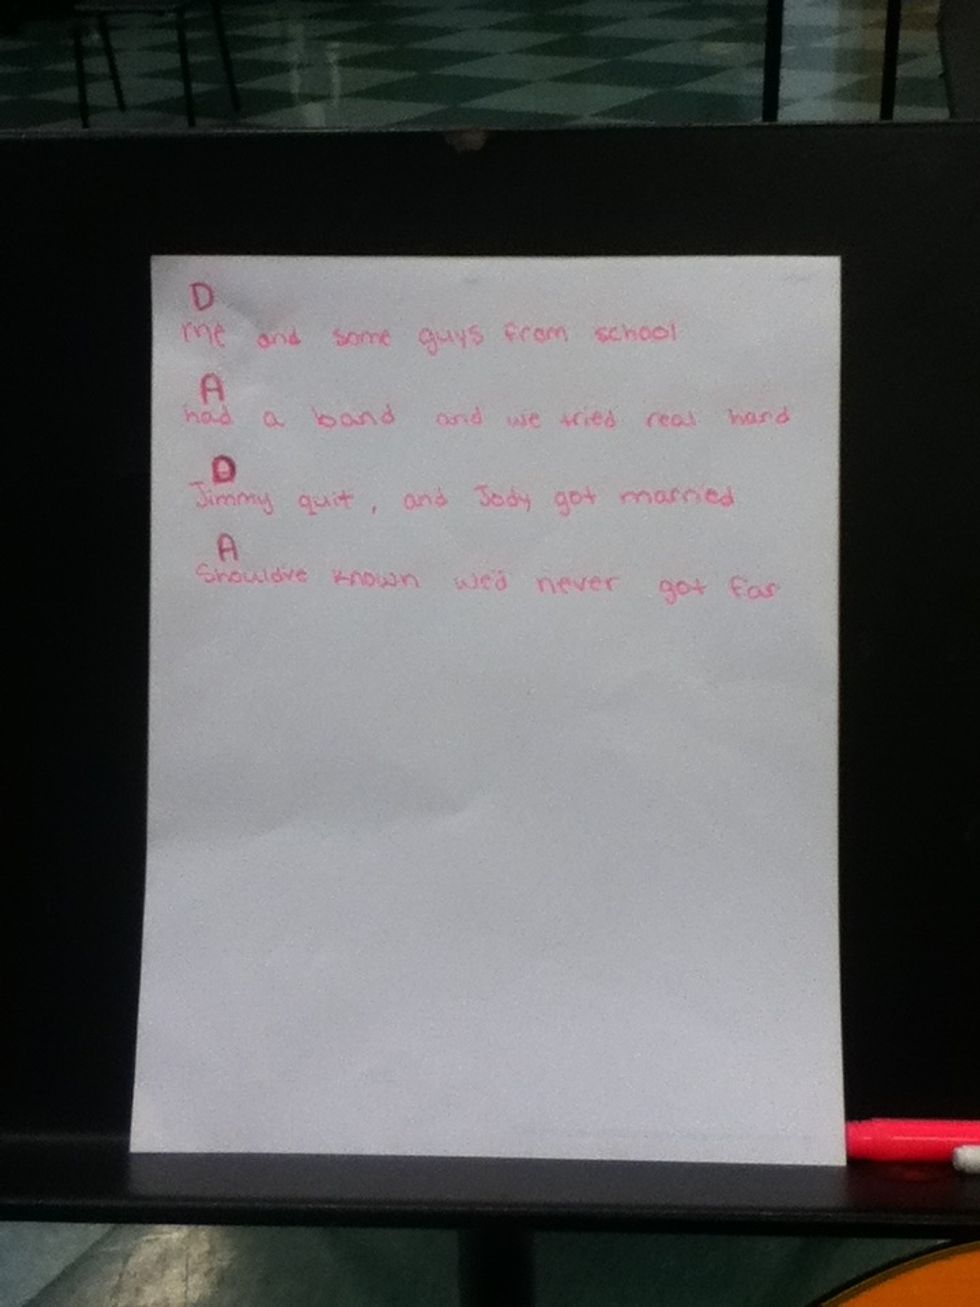 D
me and some guys from school
A
had a band and we tried real hard
D
Jimmy quit, and Jody got married
A
Shouldve known we'd never got far